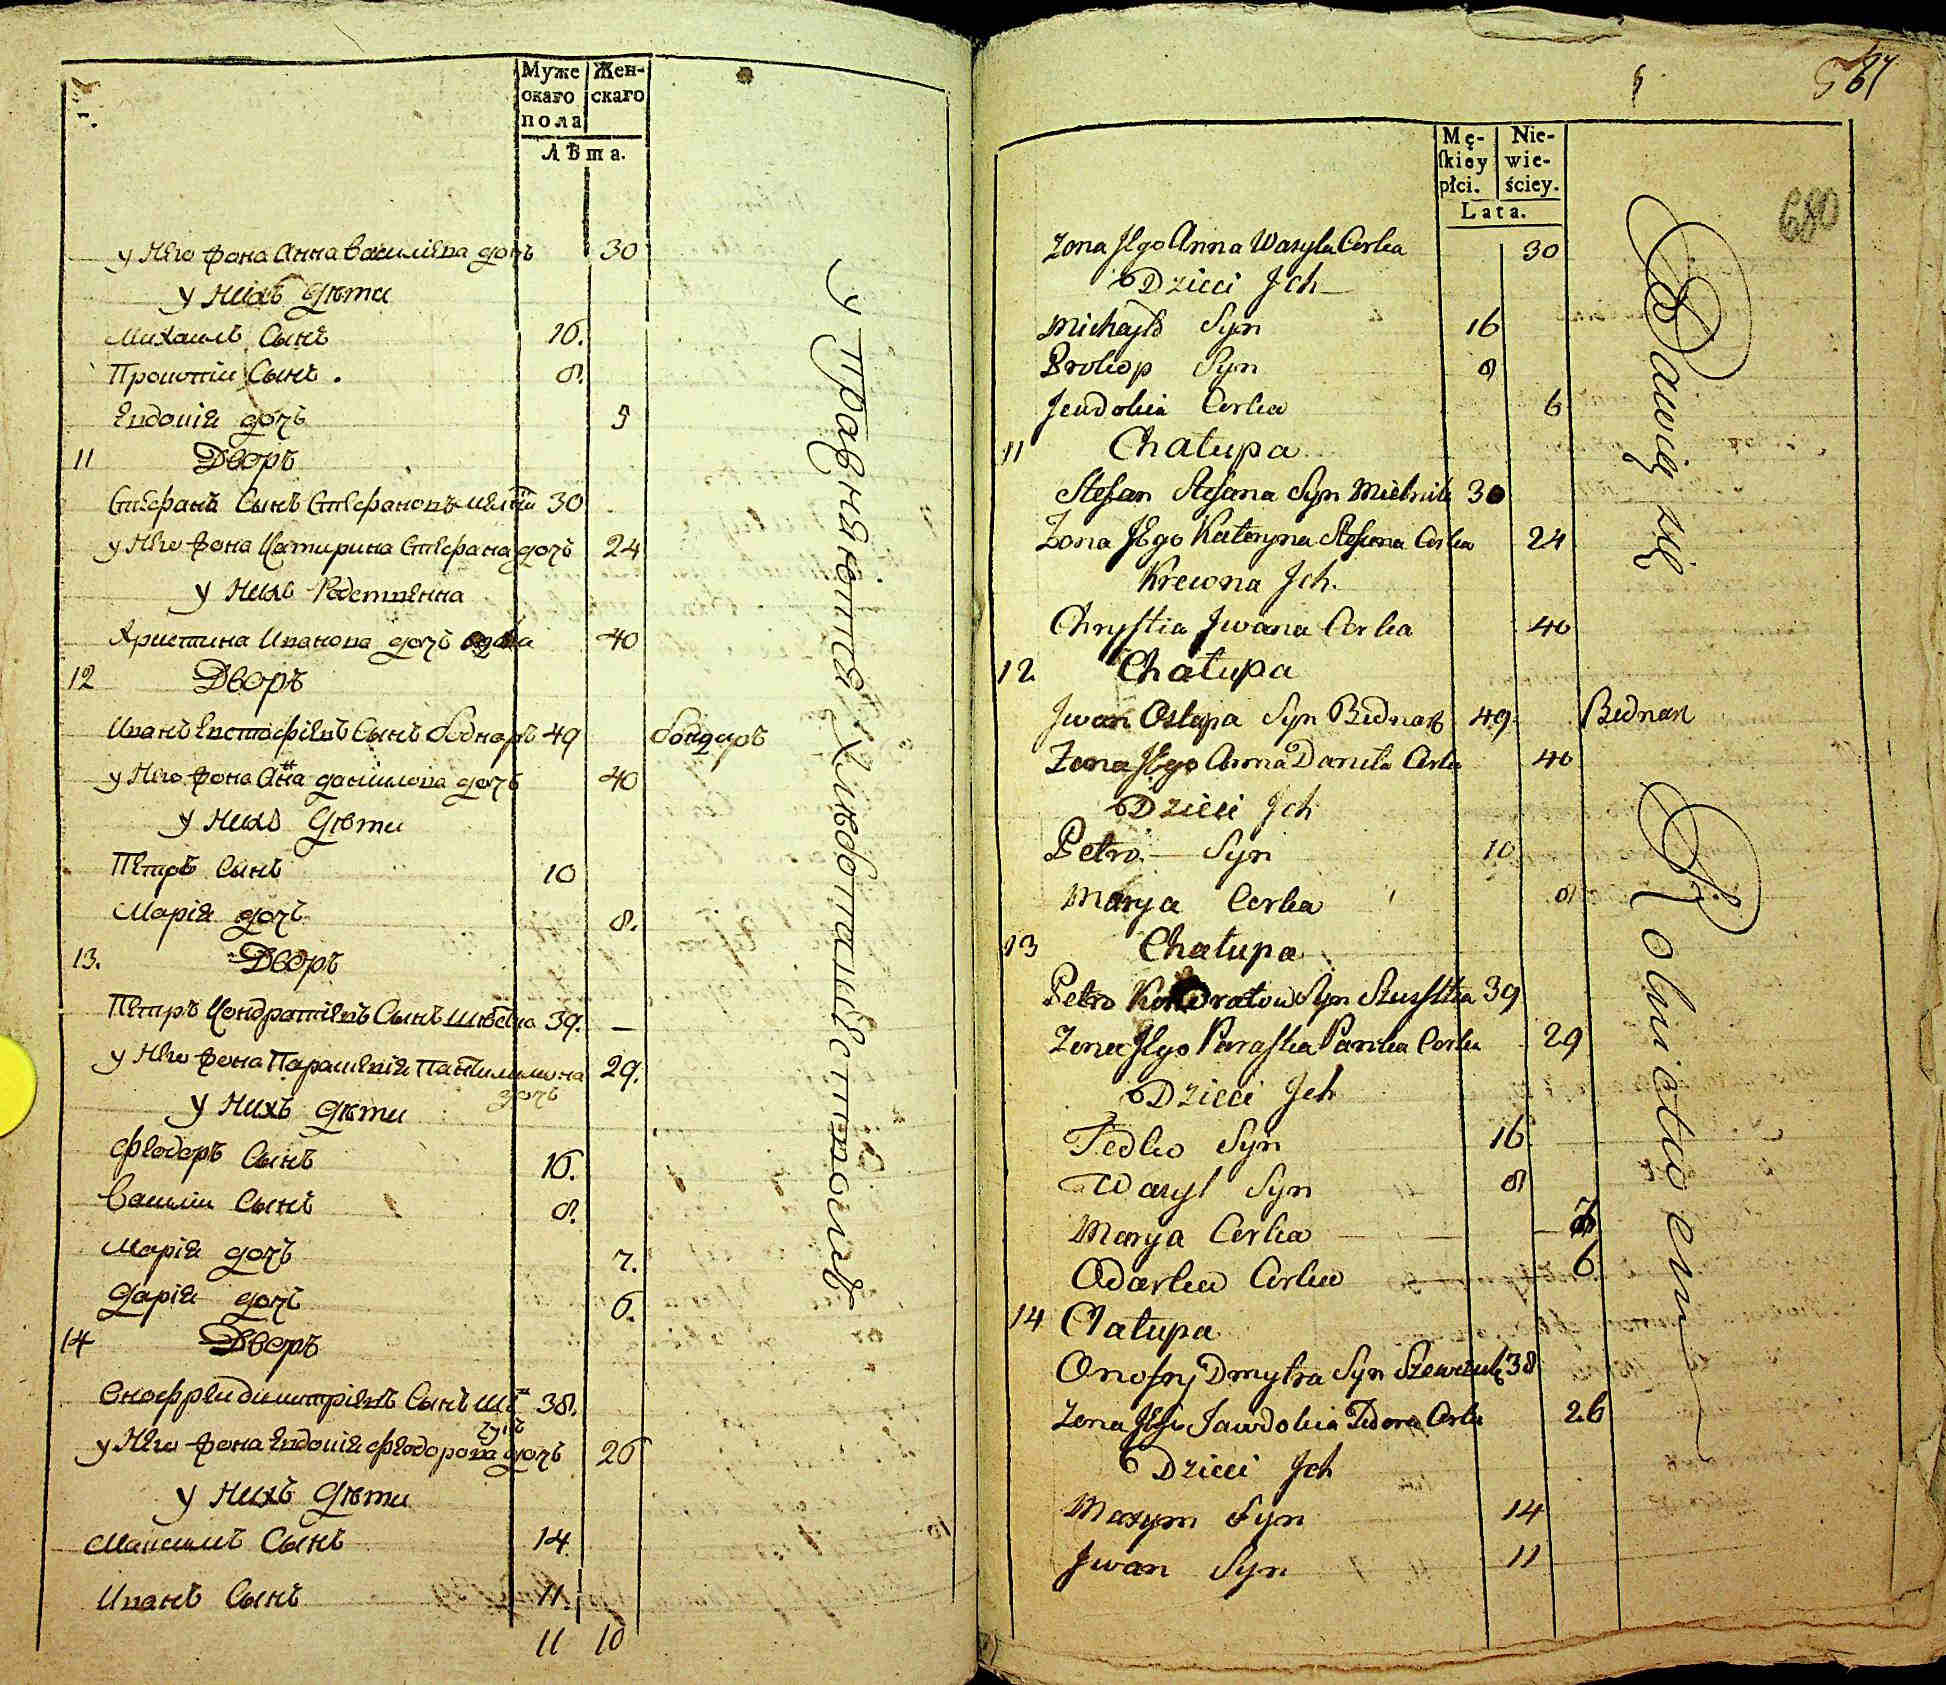 Муже
скаго
пола
Жен-
скаго
Лѣта.
у Него жона Анна Василіева дочъ 30
у Нихъ Дѣти
Михаилъ Сынъ 16.
Прокопіи Сынъ. 8.
Евдокія дочъ 5
11 Дворъ
Стефанъ Сынъ Стефановъ 30
у Него жона Катирина Стефана дочъ 24
у Нихъ
Христина Иванова дочъ 40
12 Дворъ
Иванъ Евстафіевъ Сынъ боднаръ 49 бондаръ
у Него жона Анна данилова дочъ 40
у Нихъ Дѣти
Петръ Сынъ 10
Марія дочъ 8.
13. Дворъ
Петръ Кондратіевъ Сынъ 39.
у Него жона Параскевія 29.
дочъ
у Нихъ дѣти
Феодоръ Сынъ 16.
Василіи Сынъ 8.
Марія дочъ 7.
Дарія дочъ 6.
14 Дворъ
Онофреи димитріевъ Сынъ 38.
у Него жона Евдокія Феодорова дочъ 26
у Нихъ Дѣти
Максимъ Сынъ 14
Иванъ Сынъ 11.
11 10
упражняются хлибопашествомъ
587
680
Mę-
skiey
płci.
Nie-
wie-
ściey.
Lata.
Zona Jego Anna Wasyla Corka 30
Dzieci Jch
Michayło Syn 16
Prokop Syn 8
Jeudokia Corka 6
11 Chałupa
Stefan Stefana Syn Mielnik 30
Zona Jego Kateryna Stefana Corka 24
Krewna Jch.
Chrystia Jwana Corka 40
12 Chałupa
Jwan Ostapa Syn Bednarz 49 Bednarz
Zona Jego Anna Daniła Corka 40
Dzieci Jch
Petro Syn 10
Marya Corka 8
13 Chałupa
Petro Kondratow Syn 39
Zona Jego Paraska Panka Corka 29
Dzieci Jch
Fedko Syn 16
Wasyl Syn 8
Marya Corka 7
Odarka Corka 6
14 Chałupa
Onofry Dmytra Syn Szewczuk 38
Zona Jego Jawdokia Fedora Corka 26
Dzieci Jch
Maxym Syn 14
Jwan Syn 11
Bawią się Rolnictwem